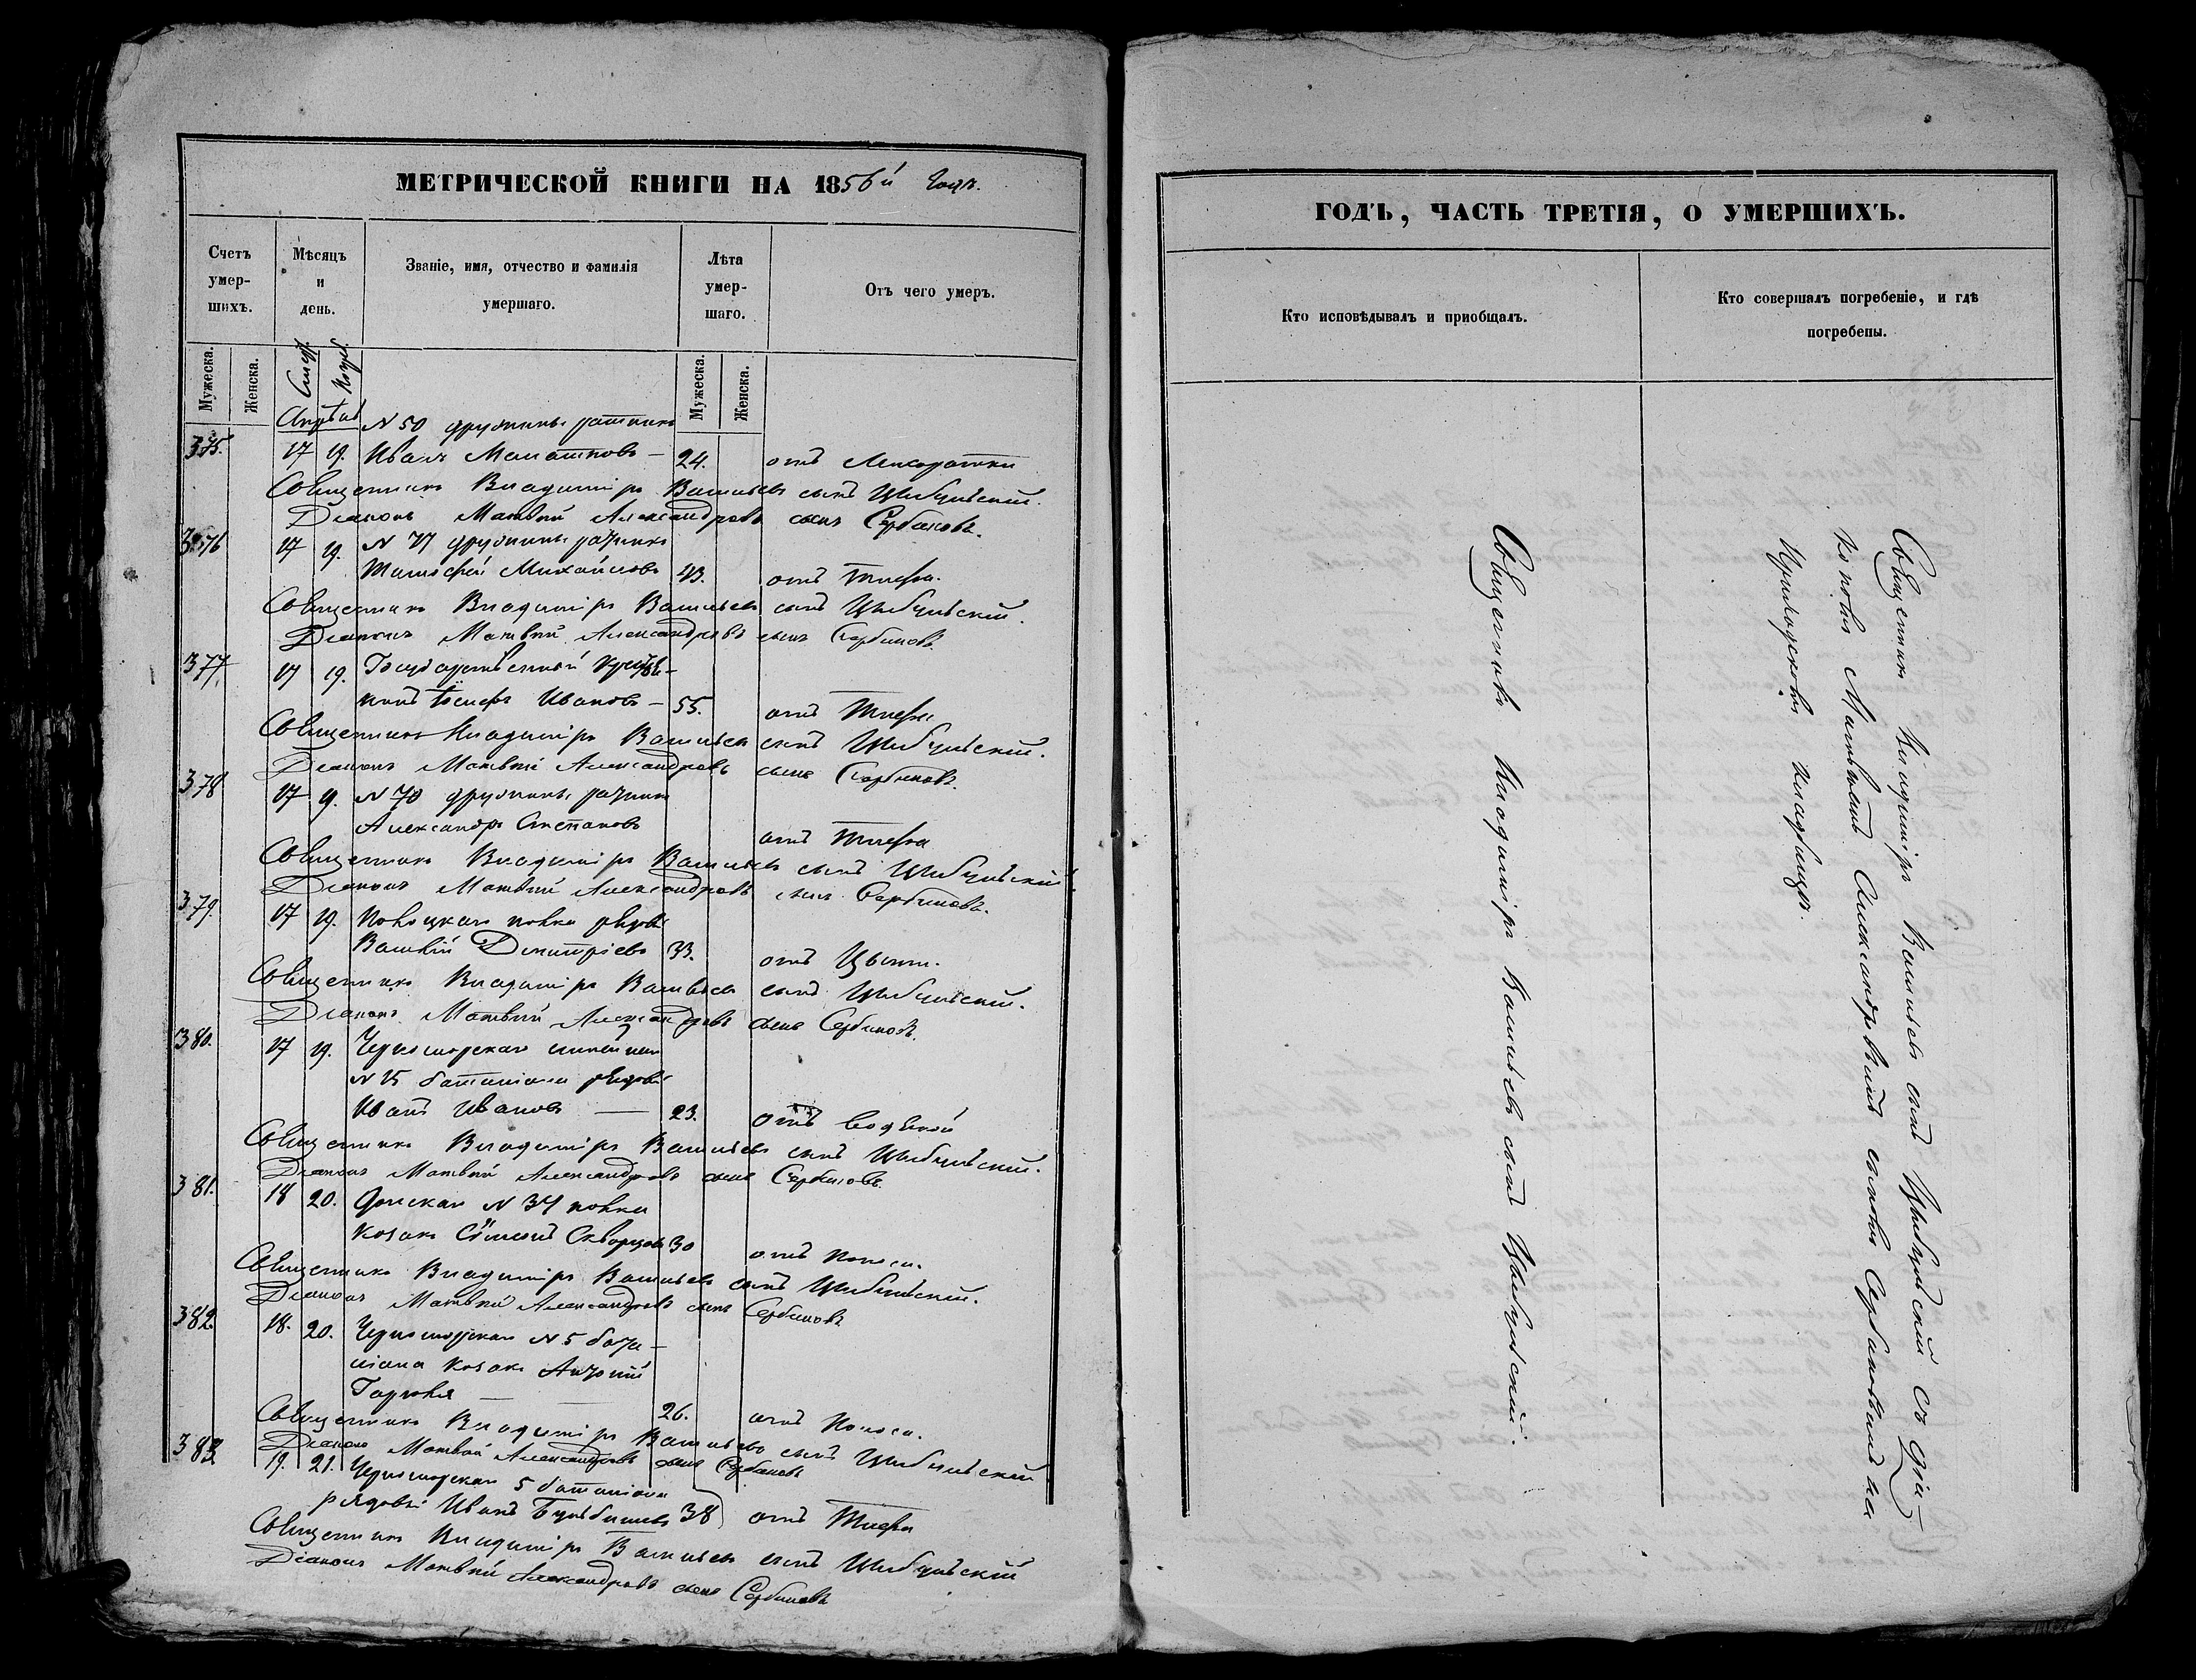 МЕТРИЧЕСКОЙ КНИГИ НА 1856й годъ.
Счетъ умер-шихъ.
Мѣсяцъ и день.
Званіе, имя, отчество и фамилія умершаго.
Лѣта умер-шаго.
Отъ чего умеръ.
Мужеска.
Женска.
Смерт.
Погреб.
Мужеска.
Женска.
Апрѣль
N 50 дружины ратникъ
375. 17 19. Иванъ — 24. отъ Лихорадки
Священникъ Владиміръ Васильевъ сынъ Цыбулевскій.
Діаконъ Матвѣй Александровъ сынъ Сербиновъ.
376 17 19. N 77 дружины ратникъ
Тимофей Михайловъ 43. отъ Тифа.
Священникъ Владиміръ Васильевъ сынъ Цыбулевскій.
Діаконъ Матвѣй Александровъ сынъ Сербиновъ
377. 17 19. Государственный крестья-
нинъ Іосифъ Ивановъ — 55. отъ Тифа
Священникъ Владиміръ Васильевъ сынъ Цыбулевскій.
Діаконъ Матвѣй Александровъ сынъ Сербиновъ.
378 17 19. N 70 дружины ратникъ
Александръ Степановъ отъ Тифа
Священникъ Владиміръ Васильевъ сынъ Цыбулевскій.
Діаконъ Матвѣй Александровъ сынъ Сербиновъ.
379. 17 19. Полоцкаго полка рядов.
Василій Димитріевъ 33. отъ Цынги.
Священникъ Владиміръ Васильевъ сынъ Цыбулевскій.
Діаконъ Матвѣй Александровъ сынъ Сербиновъ.
380. 17 19. Черноморскаго линейнаго
N 15 баталіона рядов.
Иванъ Ивановъ — 23. отъ водяной
Священникъ Владиміръ Васильевъ сынъ Цыбулевскій.
Діаконъ Матвѣй Александровъ сынъ Сербиновъ.
381. 18 20. Донскаго N 37 полка
козакъ Скворцовъ 30 отъ поноса.
Священникъ Владиміръ Васильевъ сынъ Цыбулевскій.
Діаконъ Матвѣй Александровъ сынъ Сербиновъ
382. 18. 20. Черноморскаго N 5 бата-
ліона козакъ Антоній
— 26. отъ поноса.
Священникъ Владиміръ Васильевъ сынъ Цыбулевскій
Діаконъ Матвѣй Александровъ сынъ Сербиновъ
383 19. 21. Черноморскаго 5 баталіона
рядовый Иванъ 38 отъ Тифа
Священникъ Владиміръ Васильевъ сынъ Цыбулевскій
Діаконъ Матвѣй Александровъ сынъ Сербиновъ
ГОДЪ, ЧАСТЬ ТРЕТІЯ, О УМЕРШИХЪ.
Кто исповѣдывалъ и приобщалъ.
Кто совершалъ погребеніе, и гдѣ погребены.
Священникъ Владиміръ Васильевъ сынъ Цыбулевскій.
Священникъ Владиміръ Васильевъ сынъ Цыбулевскій съ діа-
кономъ Матвѣемъ Александровымъ сыномъ Сербиновымъ на
Приходскомъ кладбищѣ.